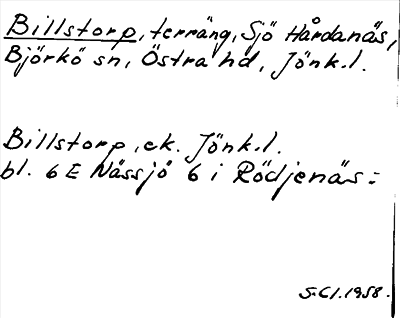 Billstorp, terräng, Sjö Hårdanäs,
Björkö sn, Östra hd, Jönk.l.
Billstorp, ek. Jönk.l.
bl. 6 E Nässjö 6 i Rödjenäs:
S.Cl.1958.